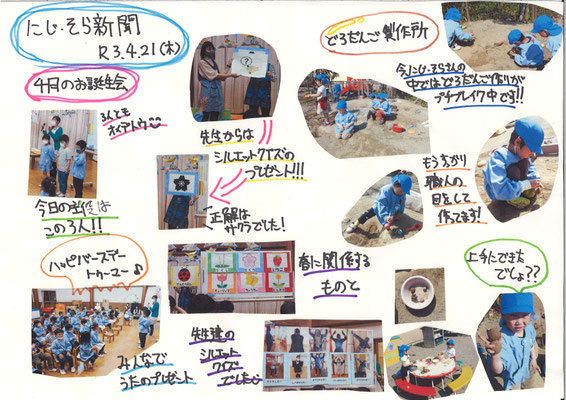 にじ・そら新聞
R3.4.21(木)
4月のお誕生会
3人とも
オメデトウ
今日の主役は
この3人!!
先生からは
シルエットクイズの
プレゼント!!!
正解は
サクラでした!
ハッピバースデー
トゥーユー♪
みんなで
うたのプレゼント
春に関係する
ものと
先生達の
シルエット
クイズ
でした
どろだんご製作所
今、にじ・そらさんの
中ではどろだんご作りが
プチブレイク中です!!
もうすっかり
職人の
目をして
作ってます!
上手にできた
でしょ??